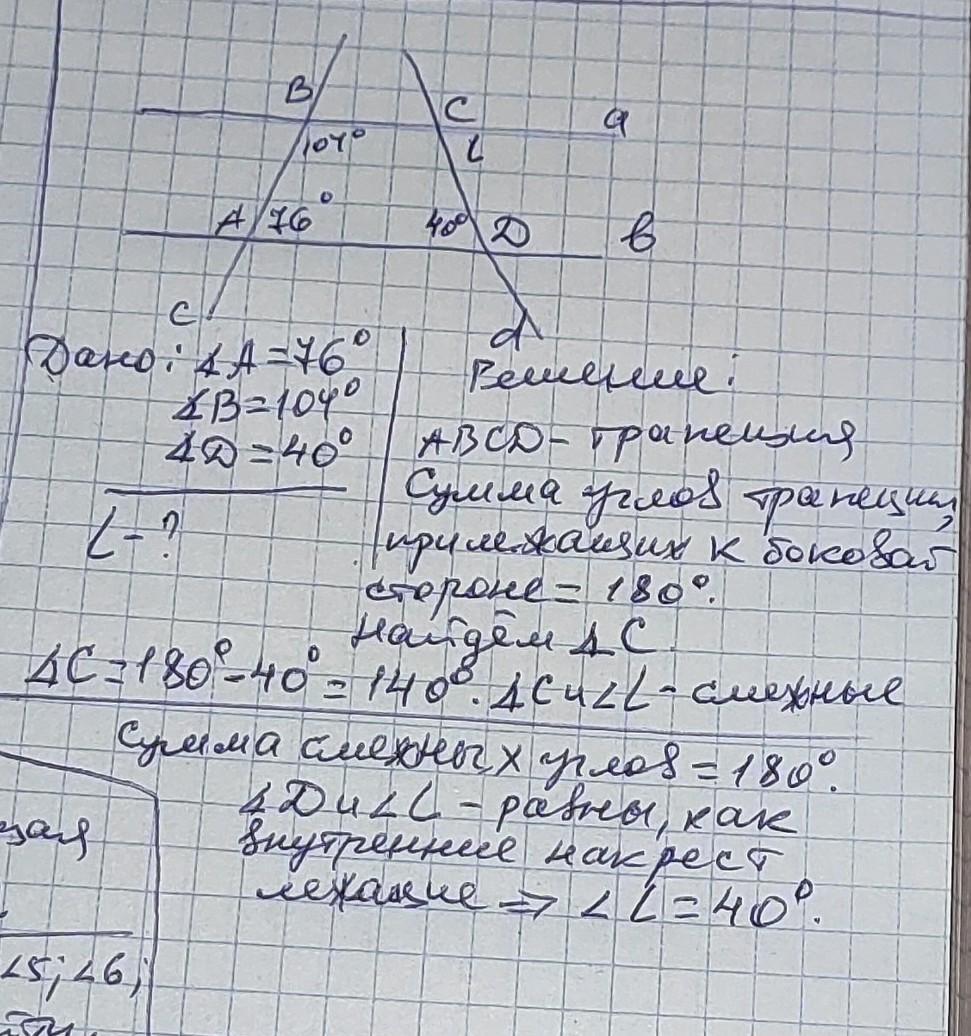 B C a
104° L
A 76° 40° D в
c d
Дано: ∡A=76°
∡B=104°
∡D=40°
L-?
Решение:
ABCD- трапеция
Сумма углов трапеции,
прилежащих к боковой
стороне = 180°.
Найдём ∡C.
∡C=180°-40°=140°. ∡C и ∠L- смежные
Сумма смежных углов = 180°.
∡D и ∠L - равны, как
внутренние накрест
лежащие ⇒ ∠L=40°.
щая
∠5; ∠6;